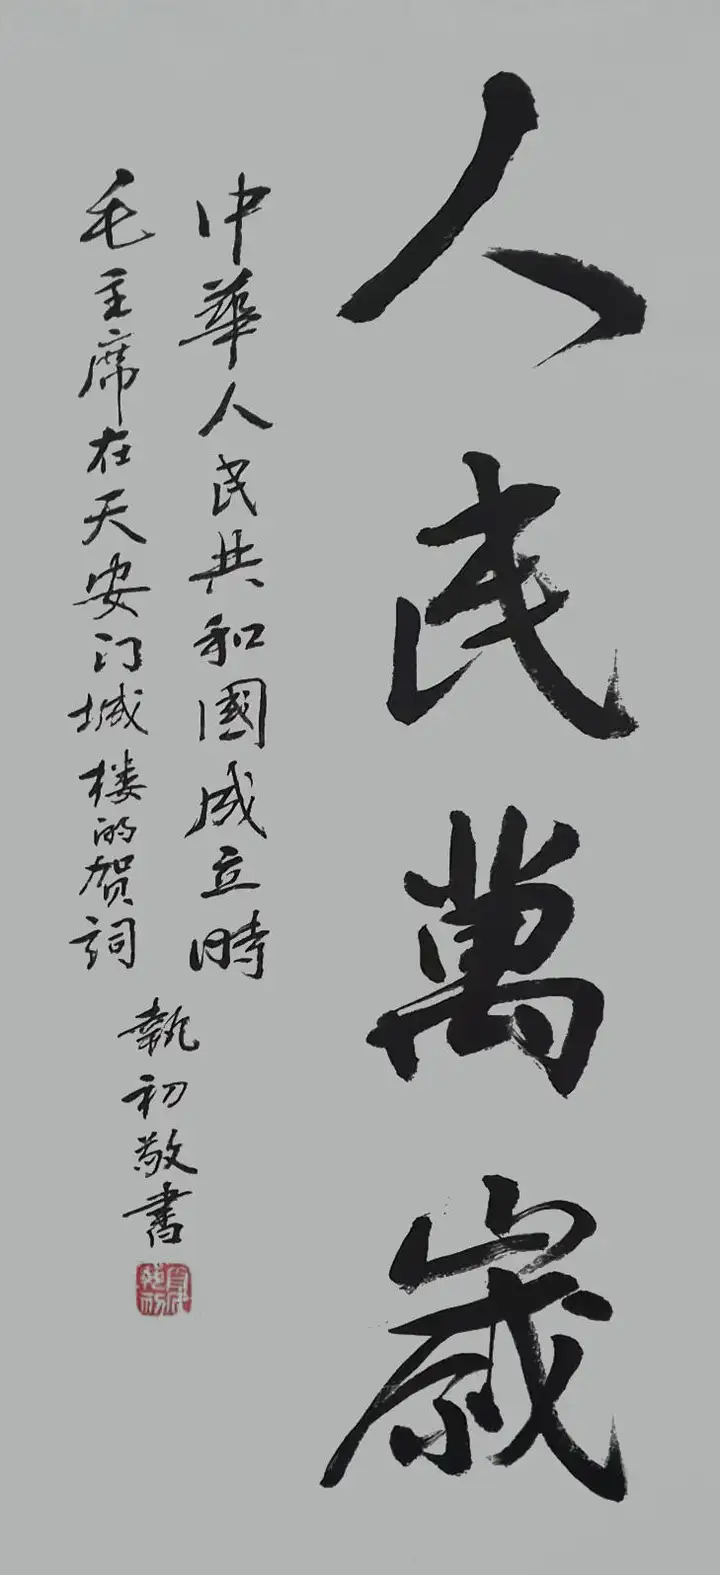 人民萬歲
中華人民共和國成立時
毛主席在天安门城楼的贺詞
執初敬書